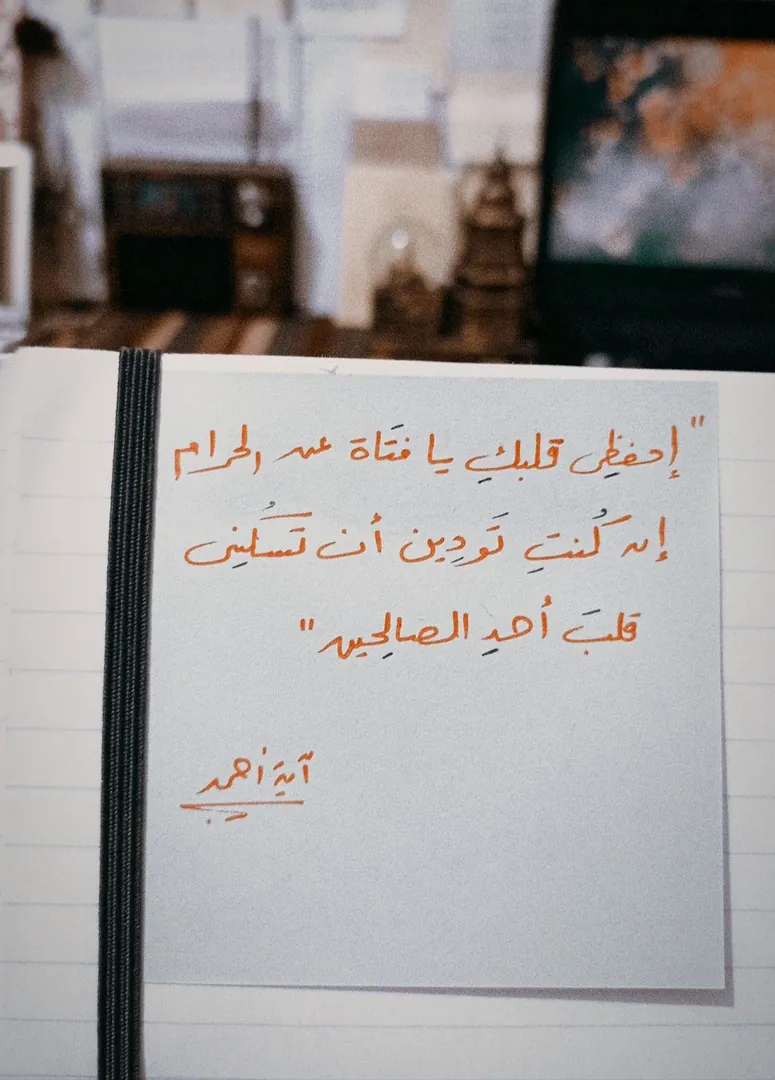 "إحفظِي قلبكِ يا فتَاة عن الحرام
إن كُنتِ تَودِين أن تَسكُنِي
قلبَ أحدِ الصالِحين"
آية أحمد